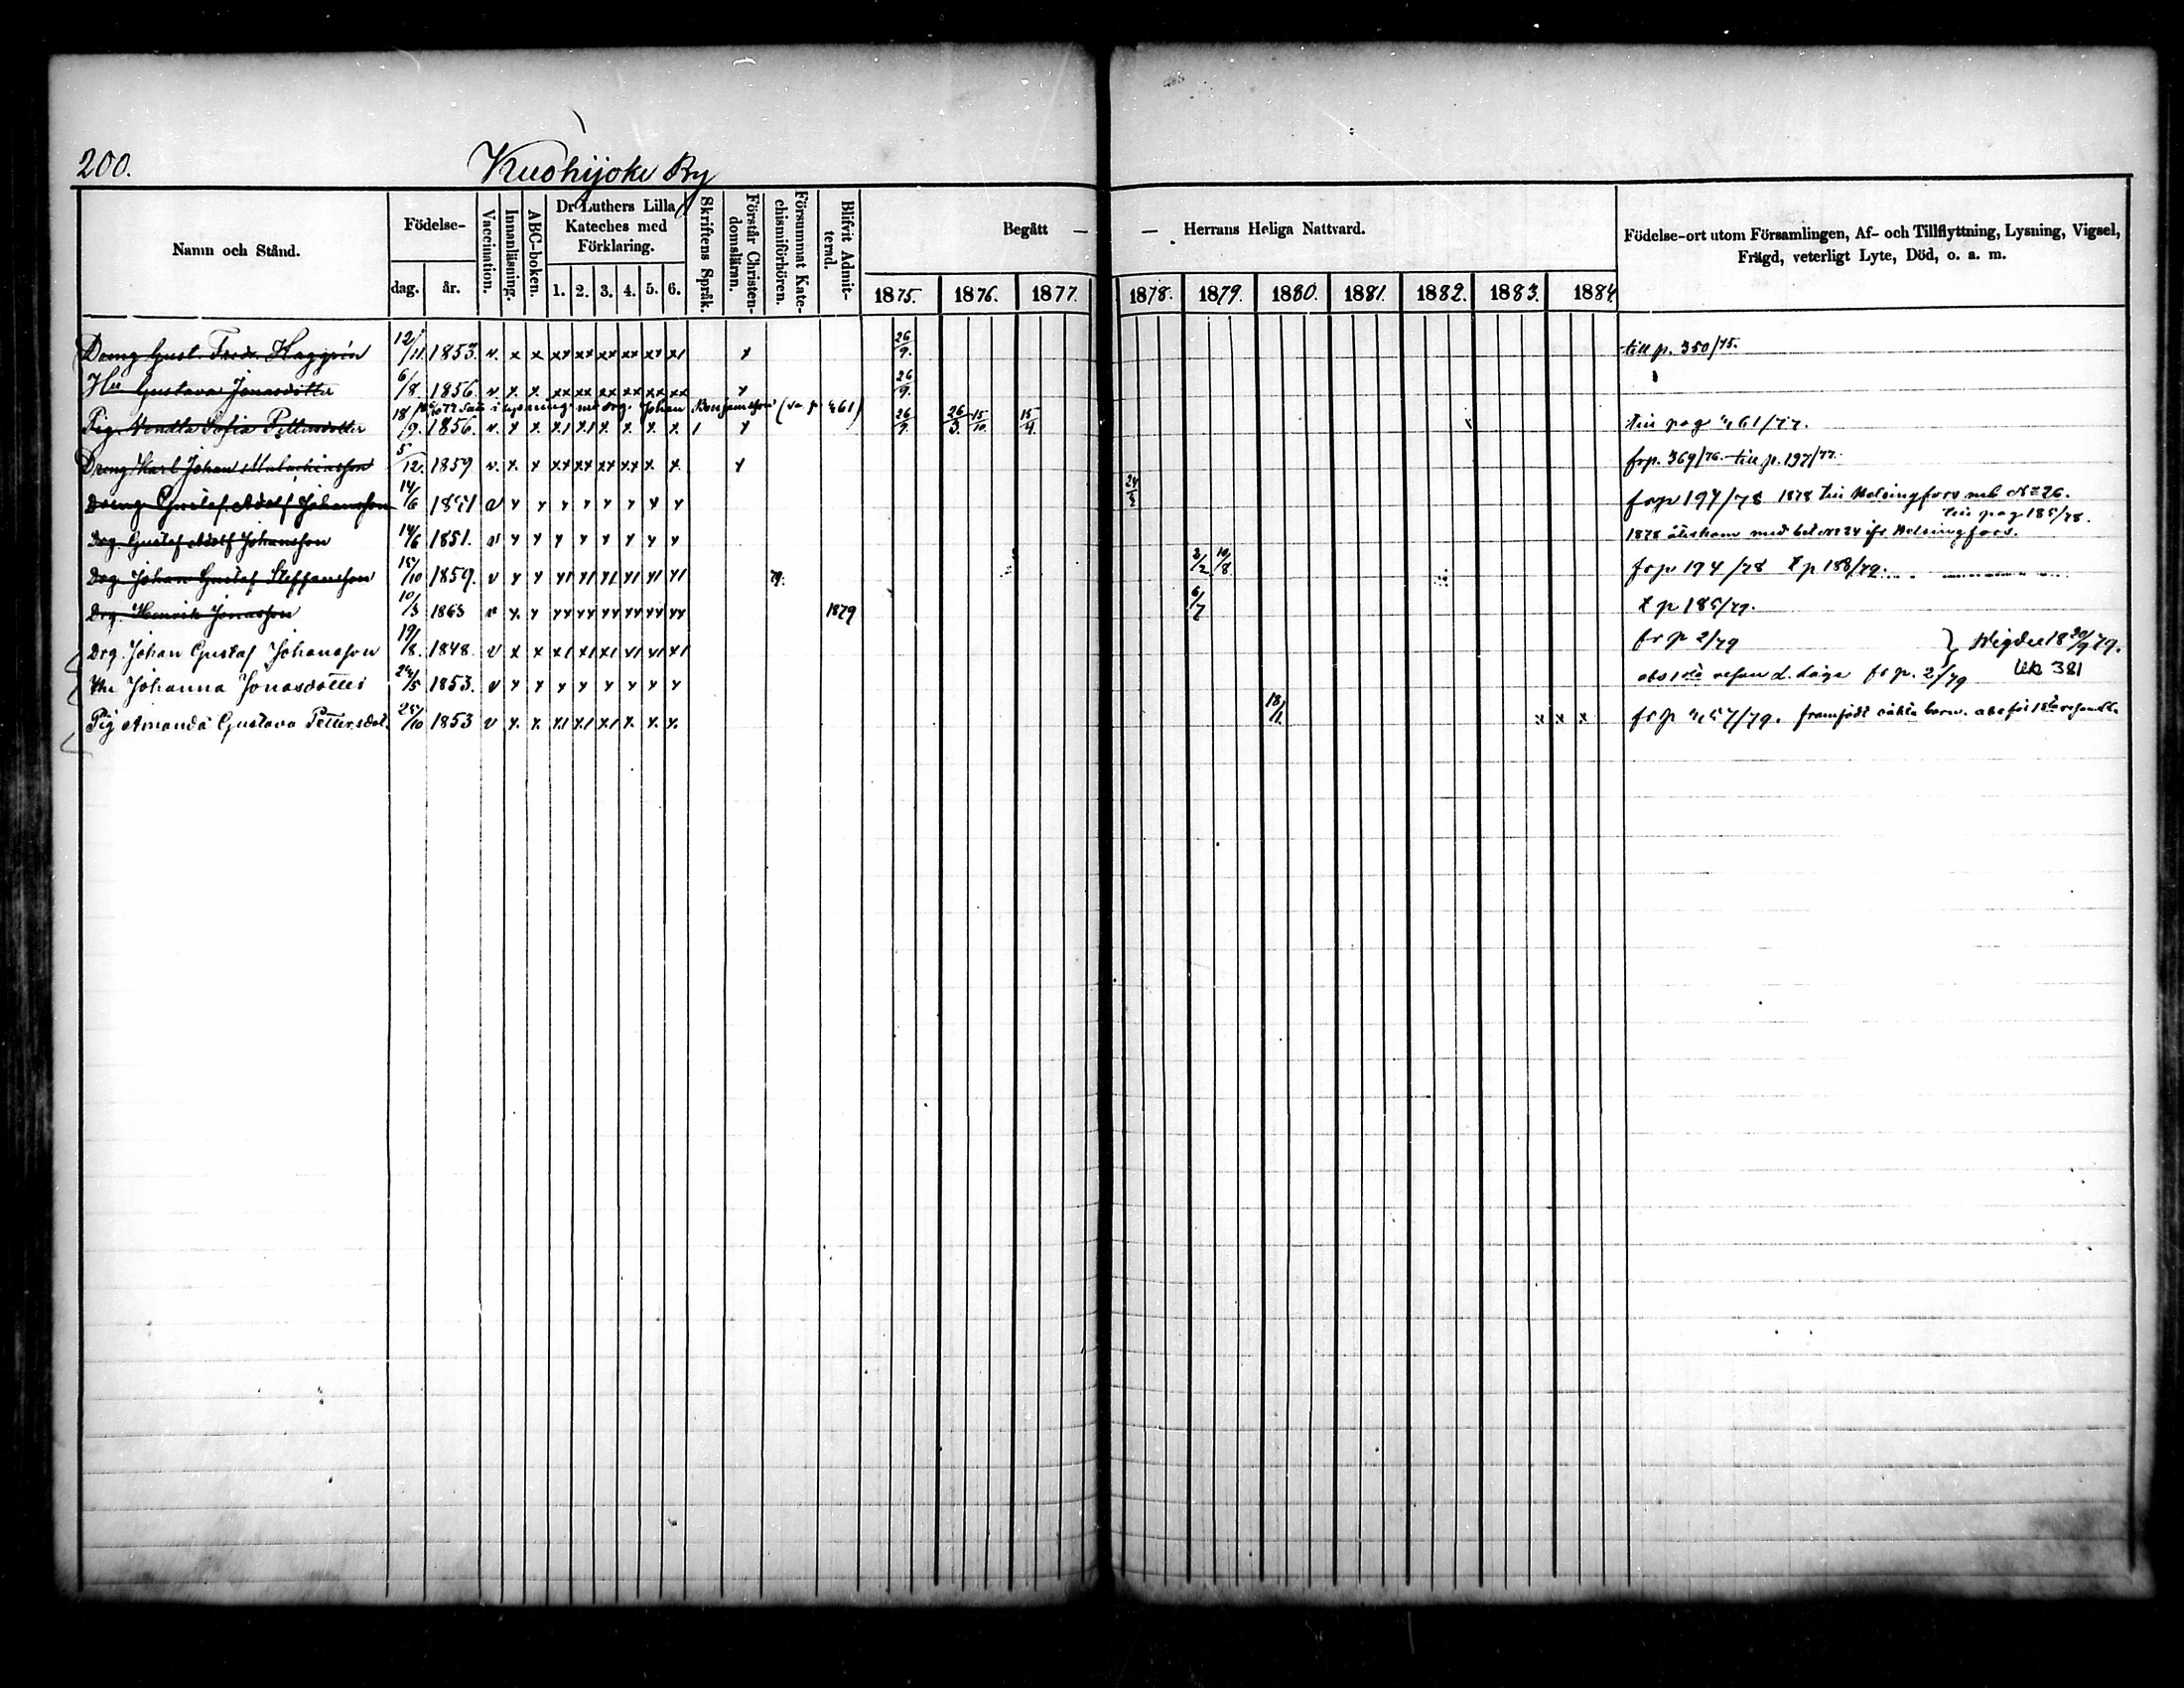 200.
Kuohijoki By
Namn och Stånd.
Födelse-
dag. år.
Vaccination.
Innanläsning.
ABC-boken.
Dr Luthers Lilla
Kateches med
Förklaring.
1. 2. 3. 4. 5. 6.
Skriftens Språk.
Förstår Christen-
domsläran.
Försummat Kate-
chismiförhören.
Blifvit Admit-
terad.
Begått — — Herrans Heliga Nattvard.
1875. 1876. 1877. 1878. 1879. 1880. 1881. 1882. 1883. 1884
Födelse-ort utom Församlingen, Af- och Tillflyttning, Lysning, Vigsel,
Frägd, veterligt Lyte, Död, o. a. m.
Dreng Gust. Fredr. Haggrén 12/11 1853. v. x x xx xx xx xx xx x1 x 26/9. till p. 350/75.
Hu Gustava Jonasdotter 6/8. 1856. v x x xx xx xx xx xx xx x 26/9.
i lysning med drg. Johan Benjamsson (se p. 461)
Pig. Vendla Sofia Pettersdotter 18/9. 1856. v. x x x1 x1 x x x x 1 x 26/9 26/3. 15/10. 15/4. till pag 461/77.
Dreng Karl Johan Malachiasson 5/12. 1859 v. x x xx xx xx xx x x x frp. 369/76. till p. 197/77.
Dreng Gustaf Adolf Johansson 14/6 1851 v x x x x x x x x frp 197/78 1878 till Helsingfors mb No 26.
till pag 185/78.
Drg. Gustaf Adolf Johansson 14/6 1851. v x x x x x x x x 1878 återkom med bet No 24 ifr Helsingfors.
Drg. Johan Gustaf Steffansson 15/10 1859. v x x x1 x1 x1 x1 x1 x1 79. 2/2 10/8 frp 194/78 t p 188/79.
Drg. Henrik Jonasson 10/3 1863 v x x xx xx xx xx xx xx 1879 6/7 t p 185/79.
Drg. Johan Gustaf Johansson 19/8. 1848. v x x x1 x1 x1 x1 x1 x1 fr p 2/79 } Wigde 18 20/9 79.
Hu Johanna Jonasdotter 24/5 1853. v x x x x x x x x fr p. 2/79 Uk 381
Pig Amanda Gustava Pettersdot. 25/10 1853 v x x x1 x1 x1 x x x 18/11. x x x fr p 457/79. framfödt oäkta barn.